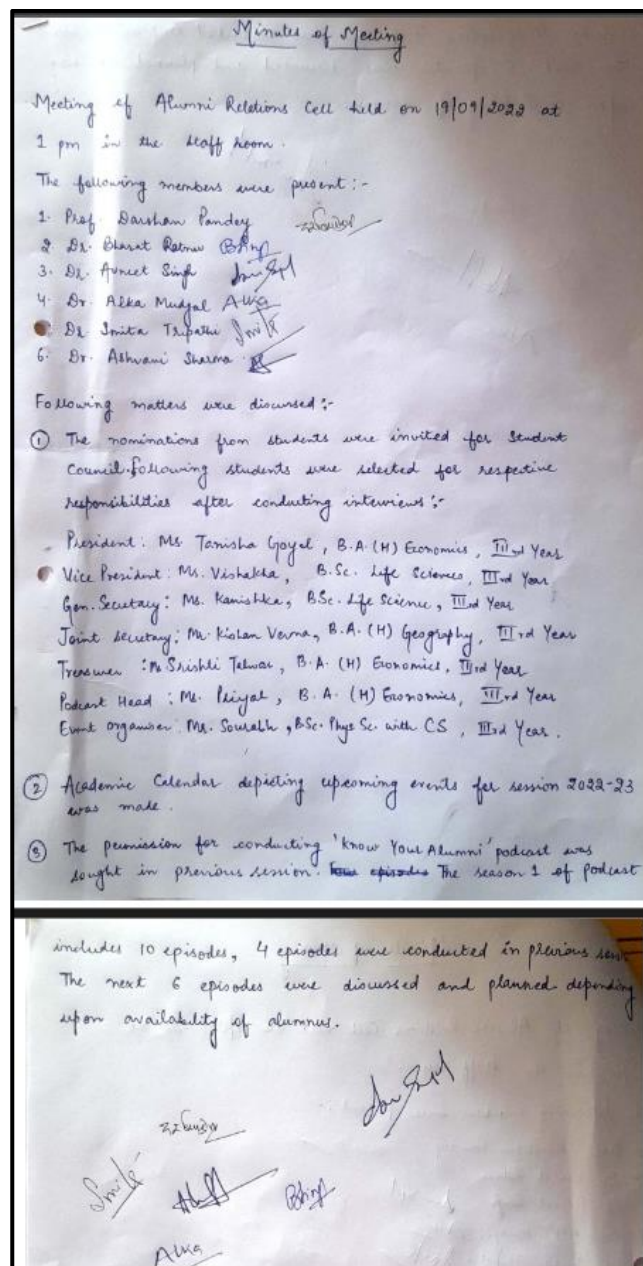 Minutes of Meeting
Meeting of Alumni Relations Cell held on 19/09/2022 at
1 pm in the staff room.
The following members were present :-
1. Prof. Darshan Pandey
2. Dr. Bharat Ratnu
3. Dr. Avneet Singh
4. Dr. Alka Mudgal Alka
Dr. Smita Tripathi Smita
6. Dr. Ashvani Sharma
Following matters were discussed :-
① The nominations from students were invited for Student
Council. Following students were selected for respective
responsibilities after conducting interviews :-
President : Ms. Tanisha Goyal, B.A. (H) Economics, IIIrd Year
Vice President : Ms. Vishakha, B.Sc. Life Sciences, IIIrd Year
Gen. Secretary : Ms. Kanishka, BSc. Life Science, IIIrd Year
Joint Secretary : Mr. Kishan Verma, B.A. (H) Geography, IIIrd Year
Treasurer : Ms Srishti Talwar, B.A. (H) Economics, IIIrd Year
Podcast Head : Ms. Priyal, B.A. (H) Economics, IIIrd Year
Event organiser : Mr. Sourabh, BSc. Phys Sc. with CS, IIIrd Year.
② Academic Calendar depicting upcoming events for session 2022-23
was made.
③ The permission for conducting 'Know Your Alumni' podcast was
sought in previous session. Four episodes The season 1 of podcast
includes 10 episodes, 4 episodes were conducted in previous
The next 6 episodes were discussed and planned depending
upon availability of alumnus.
Smita
Alka